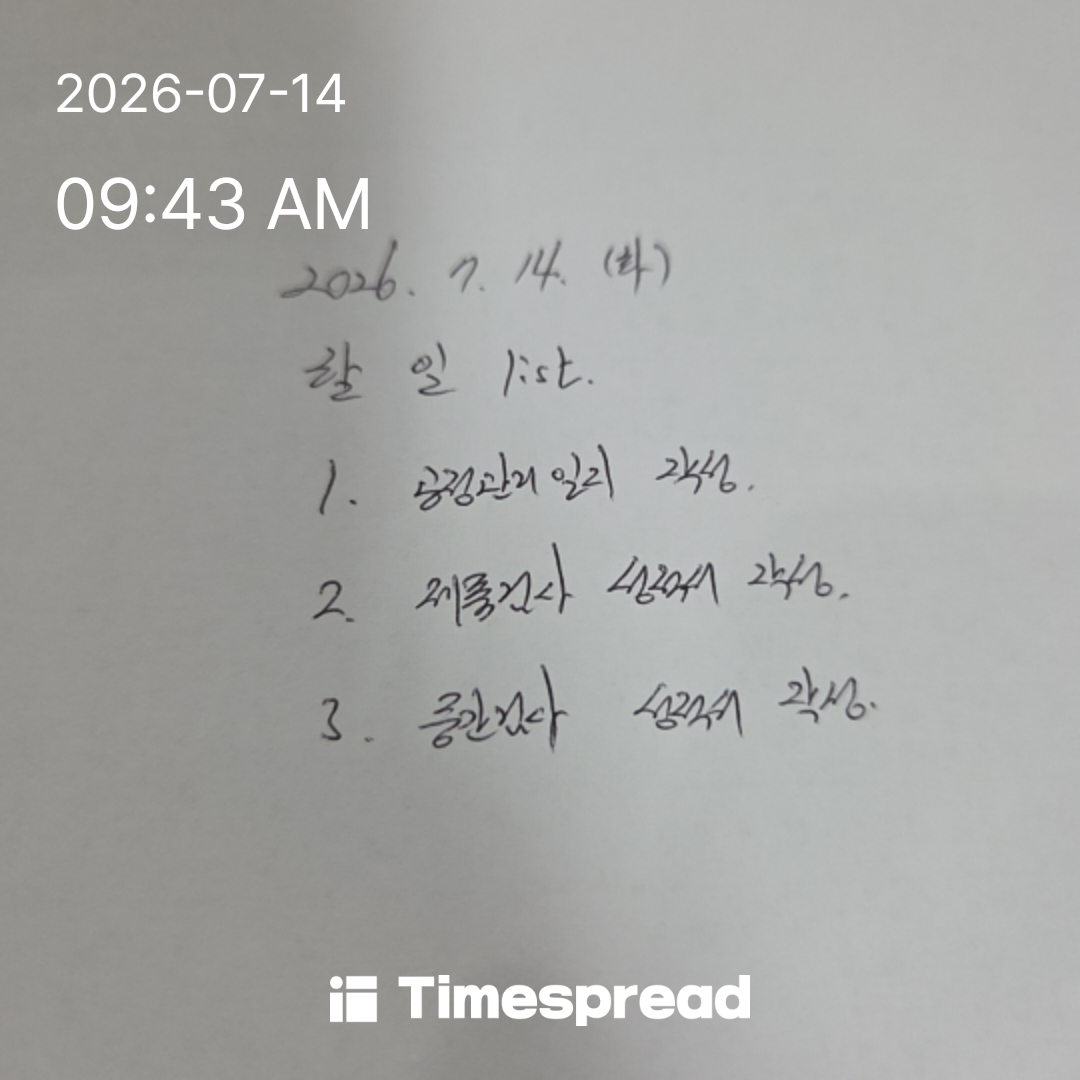 2026-07-14
09:43 AM
2026. 7. 14. (화)
할 일 list.
1. 공정관리일지 작성.
2. 제품검사 성적서 작성.
3. 중간검사 성적서 작성.
Timespread